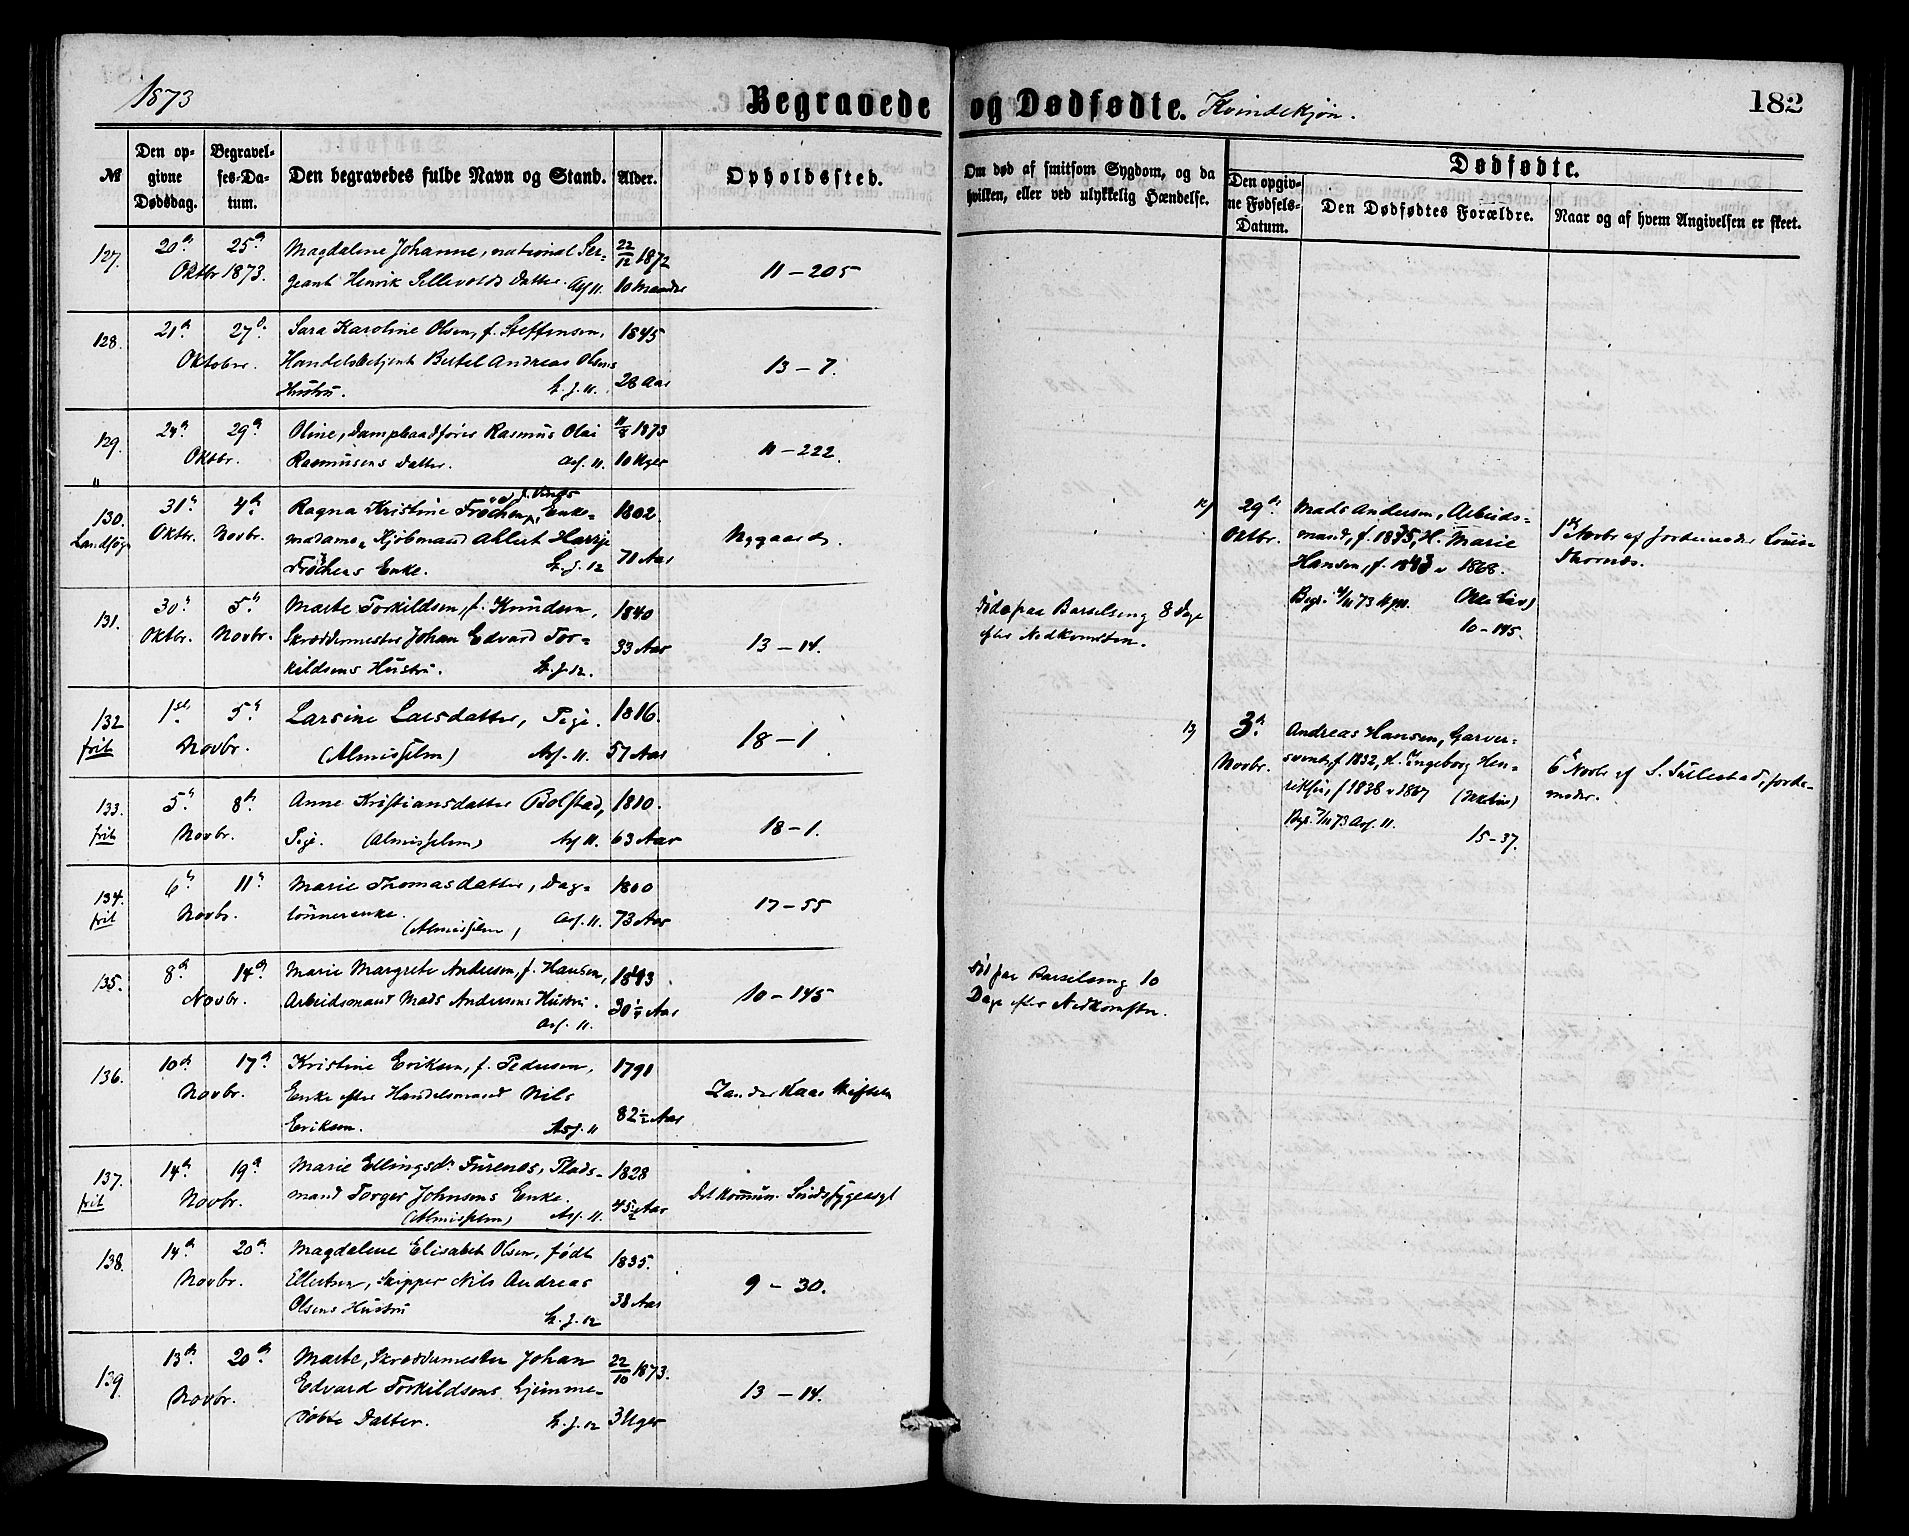 1873
Begravede og Dødfødte. Kvindekjøn.
182
№
Den opgivne Dødsdag.
Begravelses-Datum.
Den begravedes fulde Navn og Stand.
Alder.
Opholdssted.
Om død af smitsom Sygdom, og da
hvilken, eller ved ulykkelig Hændelse.
Dødfødte.
Den opgivne Fødsels-Datum.
Den Dødfødtes Forældre.
Naar og af hvem Angivelsen er skeet.
127. 20de 25de Magdalene Johanne, national Ser- 22/12 1872
Oktbr 1873. geant Henrik Sellevolds Datter. Asf 11. 10 Maaneder 11-205
128. 21de 27de Sara Karoline Olsen, f. Steffensen, 1845
Oktober. Handelsbetjent Bertel Andreas Olsens 13-7.
Hustru. k. J. 11. 28 Aar
129. 24de 29de Oline, Dampbaadfører Rasmus Olai 11/8 1873
Oktbr. Rasmusens Datter. Asf. 11. 10 Uger 11-222.
130. 31te 4de Ragna Kristine Frøchen, Enke- 1802.
Landsogn Oktbr. Novbr. madame, Kjøbmand Ahlert Harrje Nygaards.
Frøchens Enke. k. J. 12 71 Aar
131. 30te 5te Marte Torkildsen, f. Knudsen, 1840
Oktbr. Novbr. Skreddermester Johan Edvard Tor- 33 Aar 13-14.
kildsens Hustru. k. J. 12.
Død paa Barselseng 8 Dage
efter Nedkomsten.
132 1ste 5te Larsine Larsdatter, Pige. 1816.
frit Novbr. (Almisselem) Asf. 11. 57 Aar 18-1
133. 5te 8de Anne Kristiansdatter Bolstad, 1810.
frit Novbr. Pige. (Almisselem) Asf 11. 63 Aar 18-1.
134. 6te 11te Marie Thomasdatter, Dag- 1800
frit Novbr. lønnerenke. (Almisselem) Asf. 11. 73 Aar 17-55
135. 8de 14de Marie Margrete Andersen, f. Hansen, 1843
Novbr. Arbeidsmand Mads Andersens Hustru. 30 1/4 Aar 10-145
Asf. 11.
Død paa Barselseng 10
Dage efter Nedkomsten.
136. 10de 17de Kristine Eriksen, f. Pedersen, 1791
Novbr. Enke efter Handelsmand Nils Zander Kaas Stiftelse
Eriksen. Asf. 11 82 1/2 Aar
137. 14de 19de Marie Ellingsdr. Furenes, Plads- 1828
frit Novbr. mand Torger Johnsens Enke. 45 1/2 Aar
(Almisselem) Asf. 11.
138. 14de 20de Magdalene Elisabet Olsen, født 1835.
Novbr. Ellertsen, Skipper Nils Andreas 38 Aar 9-30.
Olsens Hustru k. J. 12
139. 13de 20de Marte, Skreddermester Johan 22/10 1873.
Novbr. Edvard Torkildsens hjemme- 13-14.
døbte Datter. k. J. 12 3 Uger
12) 29de Mads Andersen, Arbeids-
Oktbr. mand, f. 1835, H. Marie
Hansen, f. 1843 v 1868.
10-145.
1ste Novbr af Jordemoder Louise
Thornæs.
13) 3de Andreas Hansen, Garver-
Novbr. svend, f 1832, H. Ingeborg Hen-
riksen, f 1838 v 1867
Begr. 7/11 73 Asf. 11.
15-37.
6te Novbr af S. Sællestad, Jorde-
moder.